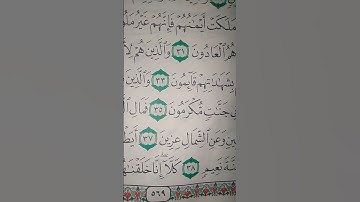 مَلَكَتْ أَيْمَٰنُهُمْ فَإِنَّهُمْ غَيْرُ مَلُو
هُمُ ٱلْعَادُونَ ٣١ وَٱلَّذِينَ هُمْ لِأَ
بِشَهَٰدَٰتِهِمْ قَآئِمُونَ ٣٣ وَٱلَّذِينَ
فِي جَنَّٰتٍ مُّكْرَمُونَ ٣٥ فَمَالِ ٱلَّ
ينِ وَعَنِ ٱلشِّمَالِ عِزِينَ ٣٧ أَيَطْ
نَّةَ نَعِيمٍ ٣٨ كَلَّآ إِنَّا خَلَقْنَٰهُ
٥٦٩